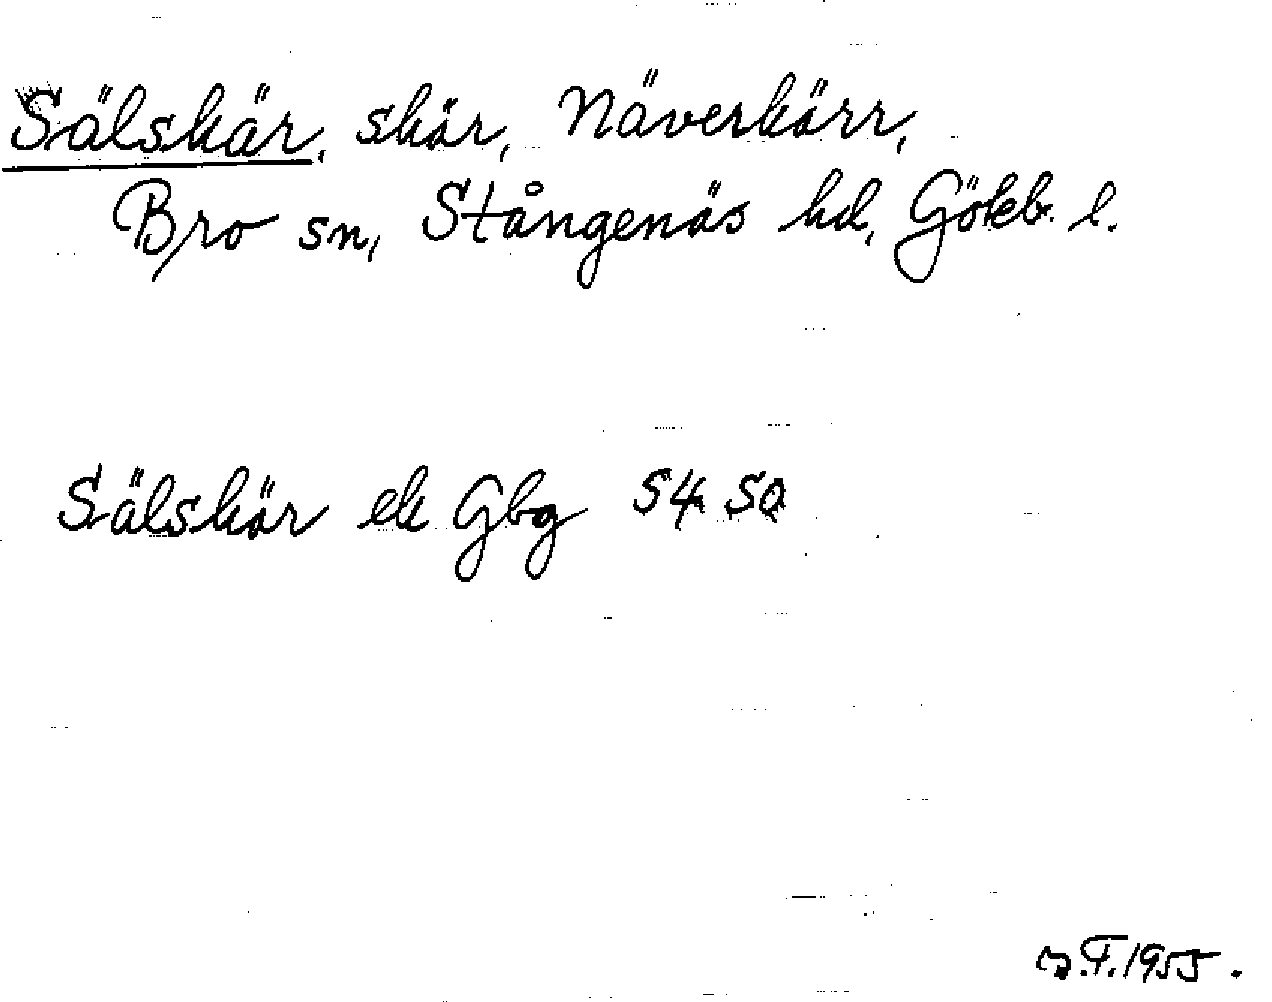 Sälskär, skär, Näverkärr,
Bro sn, Stångenäs hd, Göteb. l.
Sälskär ek Gbg 54 SO
F. 1955.